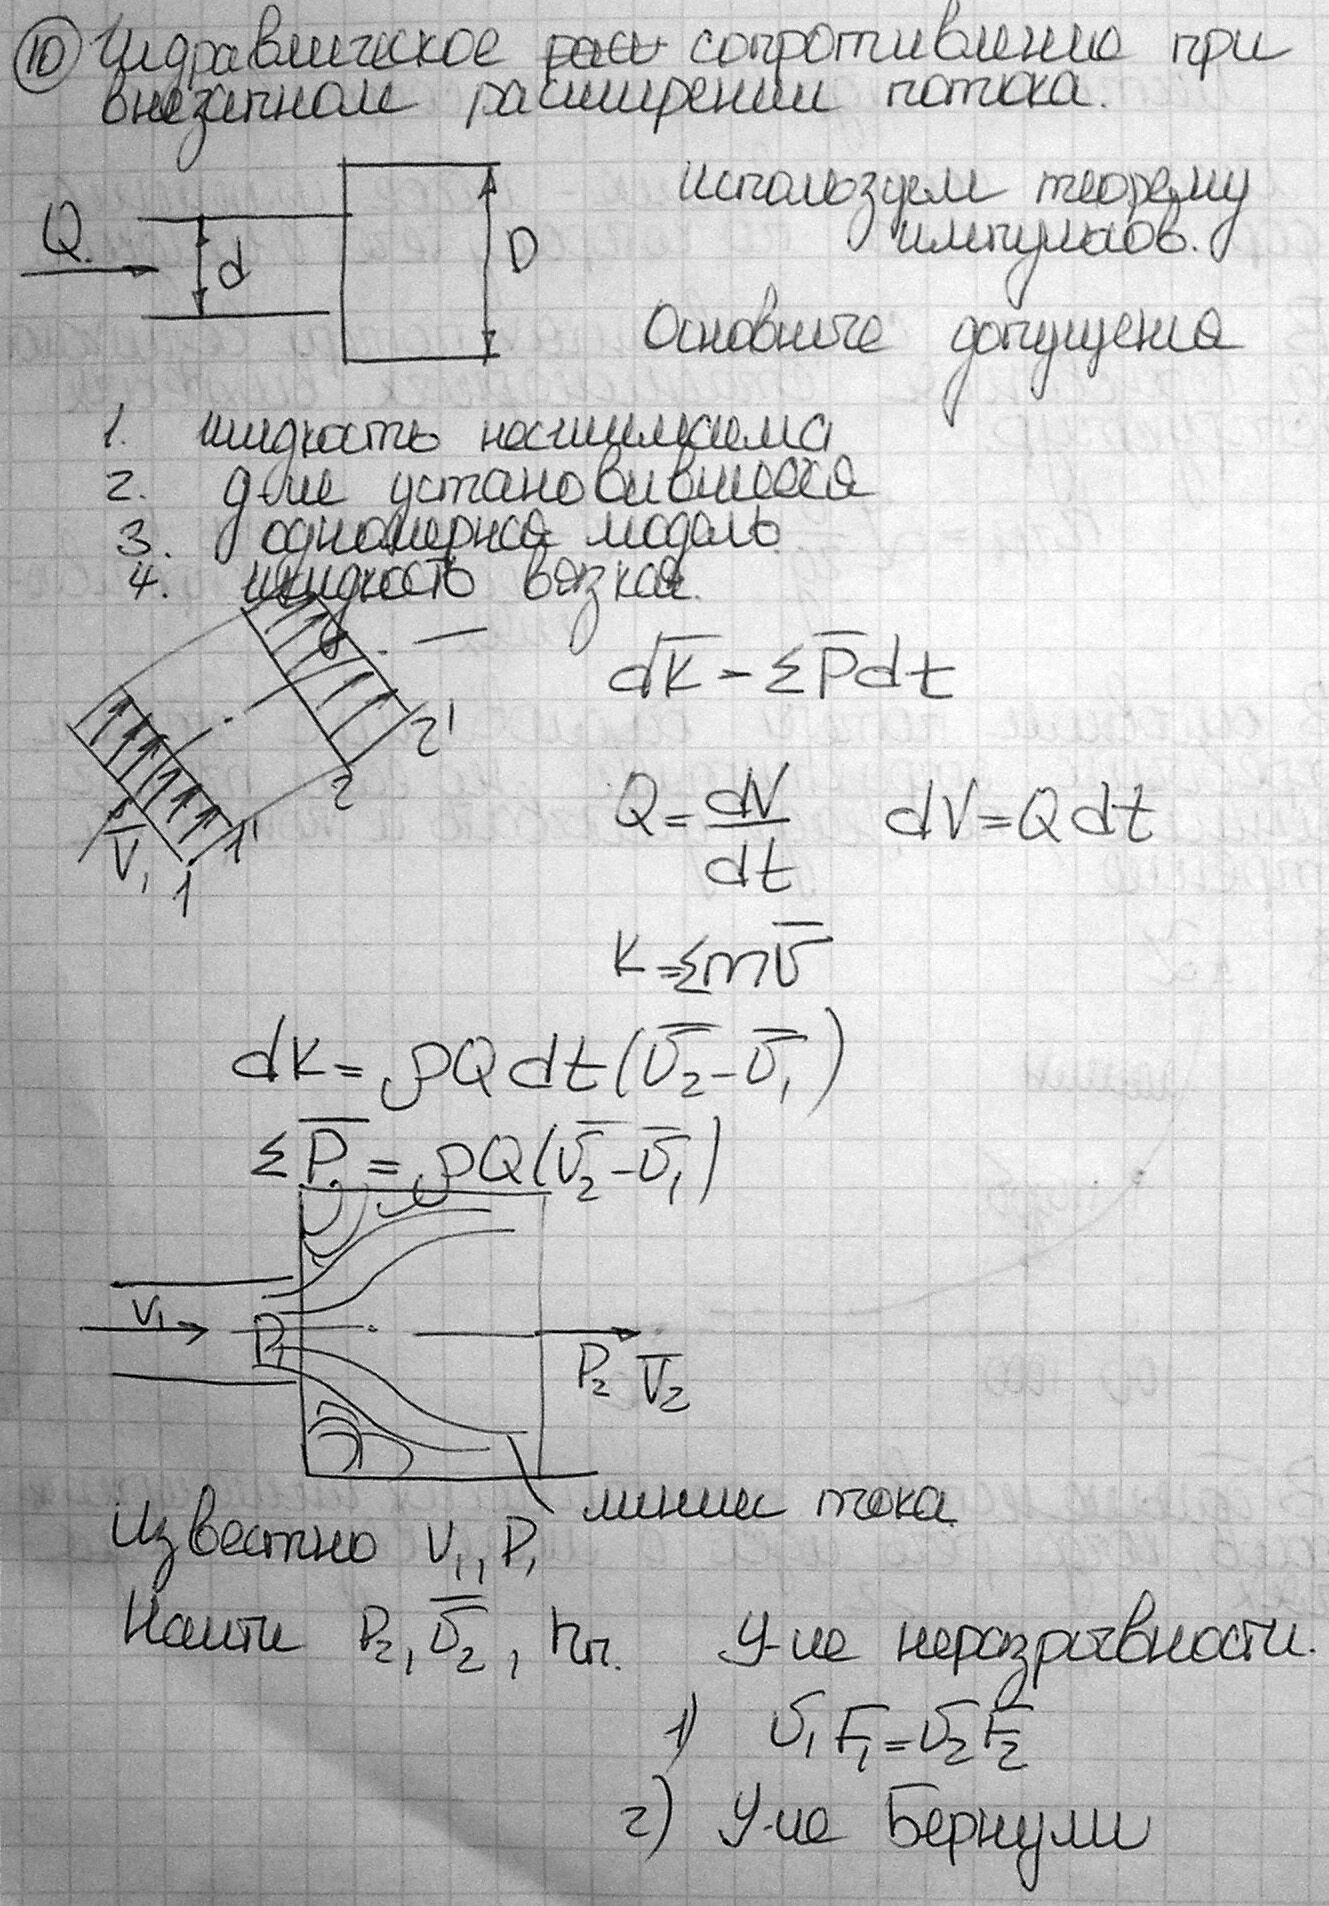 10 Гидравлическое расш сопротивление при
внезапном расширении потока.
Q d D
используем теорему
импульсов.
Основные допущения
1. жидкость несжимаема
2. д-ие установившееся
3. одномерная модель
4. жидкость вязкая.
dK̅ = ΣP̅dt
V̅₁ 1 1' 2 2'
Q = dV/dt dV = Qdt
K = Σmv̅
dK = ρQdt(v̅₂ - v̅₁)
ΣP̅ = ρQ(v̅₂ - v̅₁)
V₁ P₁ P₂ V̅₂
линии тока
Известно V₁, P₁
Найти P₂, v̅₂, hп. У-ие неразрывности.
1) v₁F₁ = v₂F₂
2) У-ие Бернули